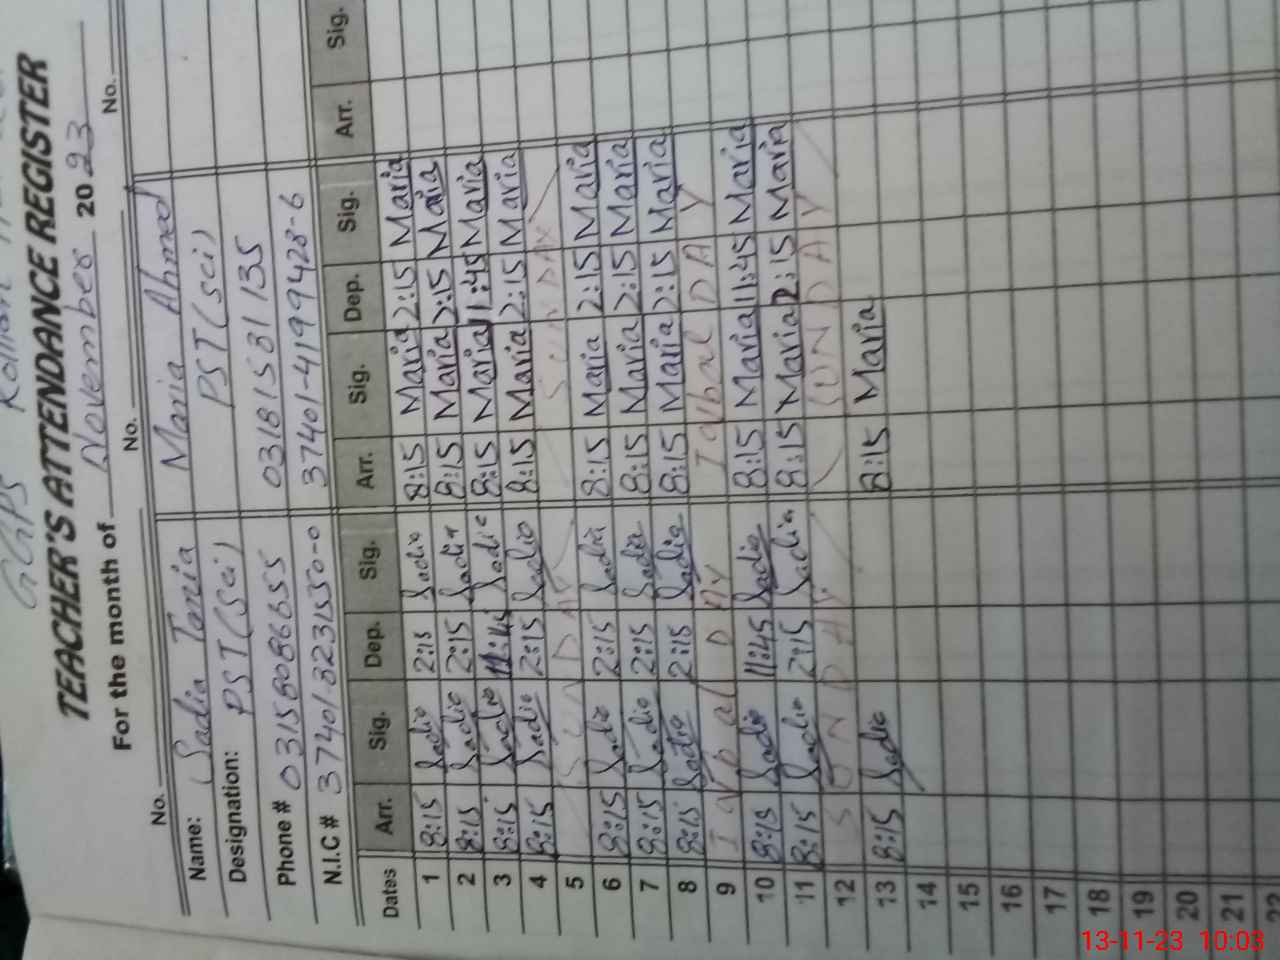 GGPS
TEACHER'S ATTENDANCE REGISTER
For the month of November 2023
No. No. No.
Name: Sadia Tania Maria Ahmed
Designation: PST (Sci) PST (sci)
Phone # 03158086655 03181581135
N.I.C # 37401-4199428-6
Dates Arr. Sig. Dep. Sig. Arr. Sig. Dep. Sig. Arr. Sig.
1 8:15 Sadia 2:15 Sadia 8:15 Maria 2:15 Maria
2 8:15 Sadia 2:15 Sadia 8:15 Maria 2:15 Maria
3 8:15 Sadia 11:45 Sadia 8:15 Maria 11:45 Maria
4 8:15 Sadia 2:15 Sadia 8:15 Maria 2:15 Maria
5 SUNDAY SUNDAY
6 8:15 Sadia 2:15 Sadia 8:15 Maria 2:15 Maria
7 8:15 Sadia 2:15 Sadia 8:15 Maria 2:15 Maria
8 8:15 Sadia 2:15 Sadia 8:15 Maria 2:15 Maria
9 Iqbal DAY Iqbal DAY
10 8:15 Sadia 11:45 Sadia 8:15 Maria 11:45 Maria
11 8:15 Sadia 2:15 Sadia 8:15 Maria 2:15 Maria
12 SUNDAY SUNDAY
13 8:15 Sadia 8:15 Maria
14
15
16
17
18
19
20
21
22
13-11-23 10:03